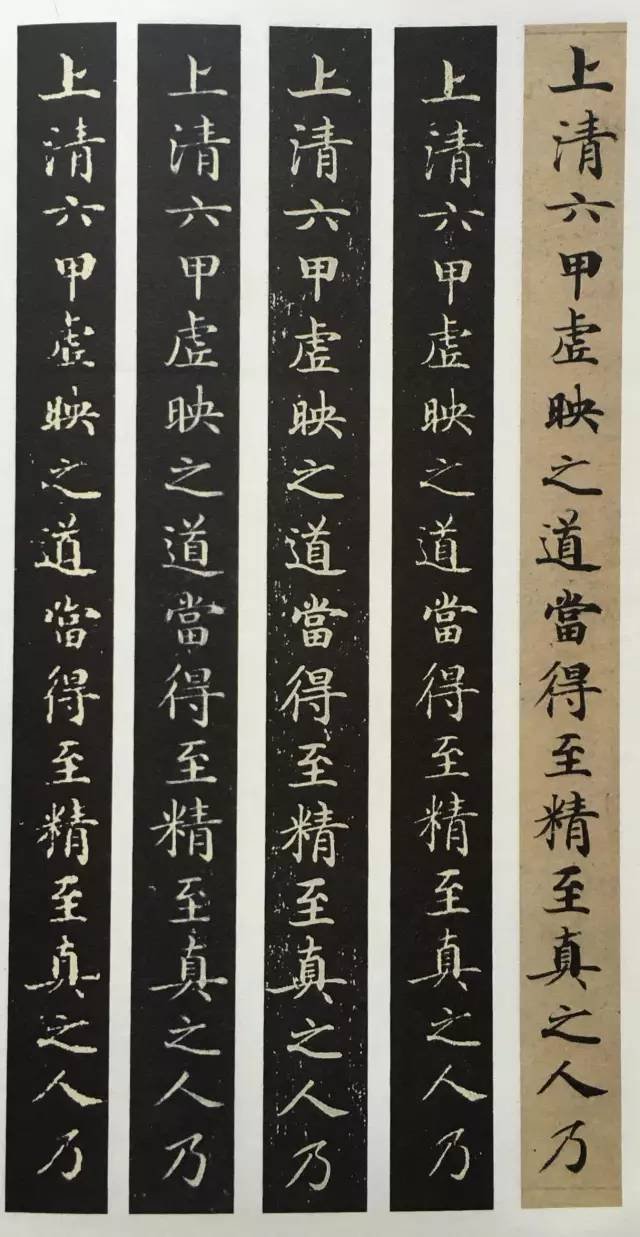 上清六甲虚映之道當得至精至真之人乃
上清六甲虚映之道當得至精至真之人乃
上清六甲虚映之道當得至精至真之人乃
上清六甲虚映之道當得至精至真之人乃
上清六甲虚映之道當得至精至真之人乃